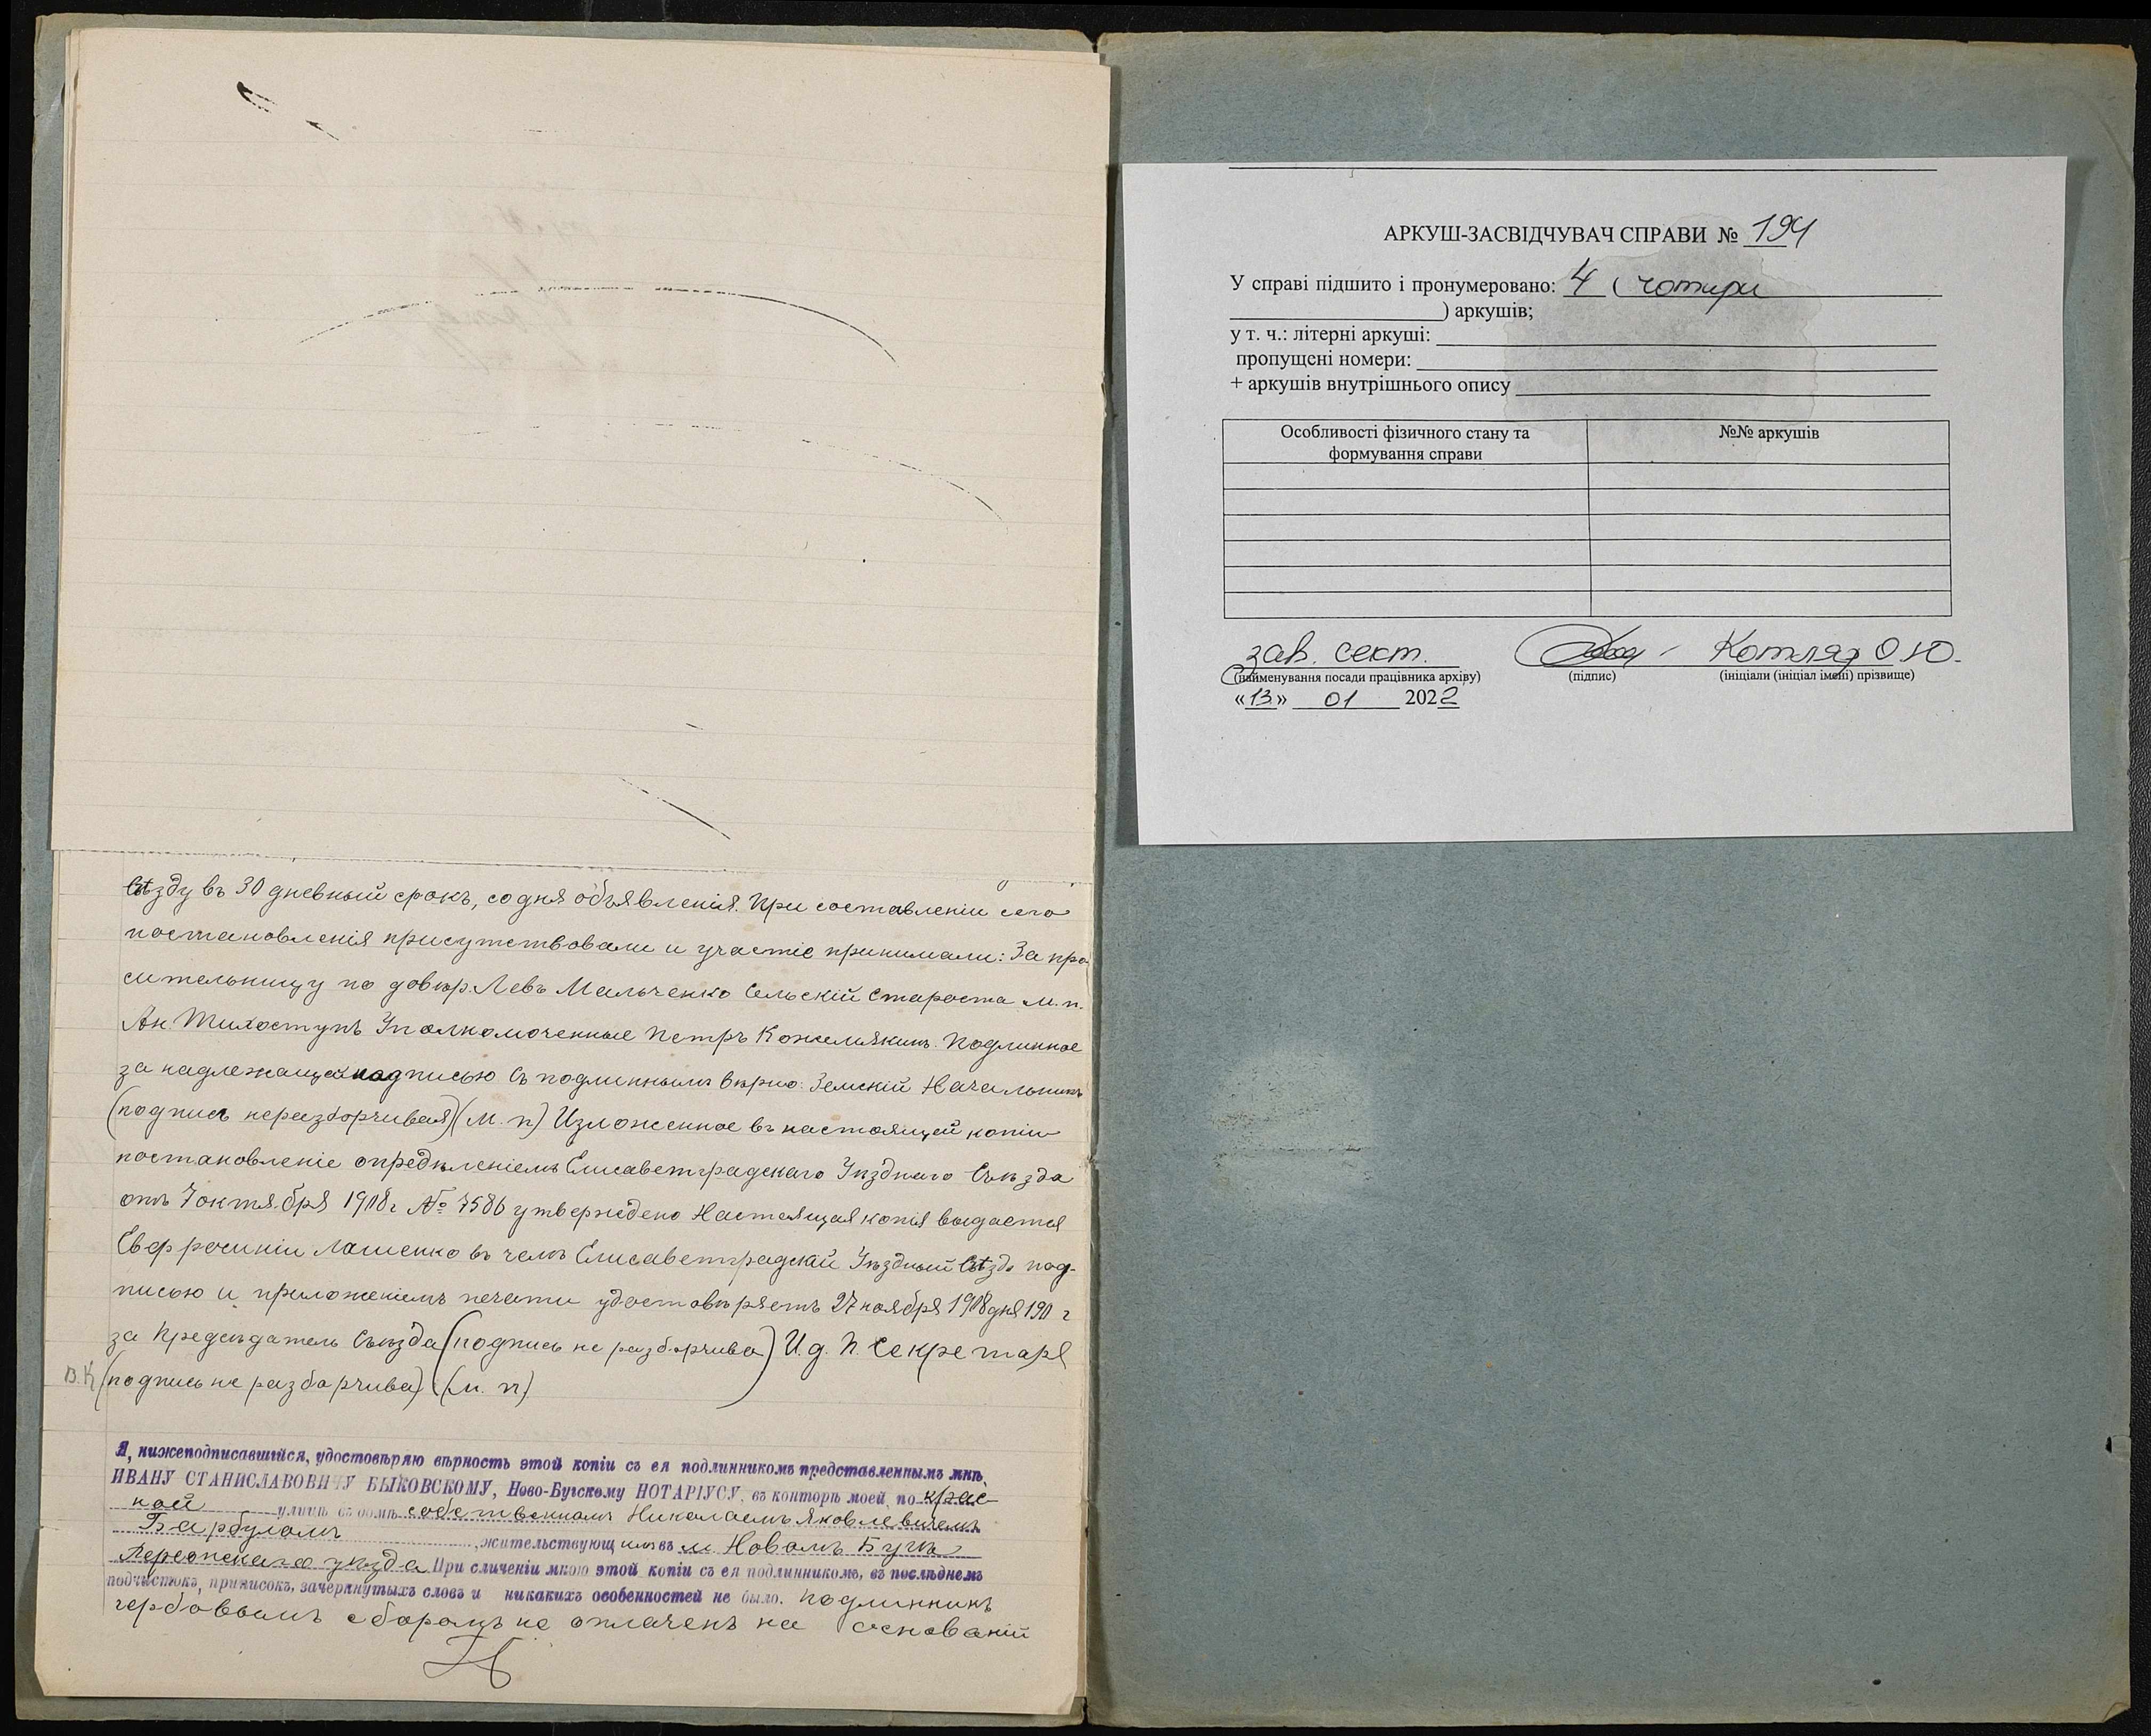 Съѣзду въ 30 дневный срокъ, со дня объявленія. При составленіи сего
постановленія присутствовали и участіе принимали: За про
сительницу по довѣр. Левъ Мальченко Сельскій Староста м. п.
Ан. Тихоступъ Уполномоченные Петръ Кожемякинъ. Подлинное
за надлежащею подписью Съ подлиннымъ вѣрно: Земскій Начальникъ
(подпись неразборчивая) (М. п) Изложенное въ настоящей копіи
постановленіе опредѣленіемъ Елисаветградскаго Уѣзднаго Съѣзда
отъ 7 октября 1908 г № 7586 утверждено Настоящая копія выдается
Евфросиніи Лашенко въ чемъ Елисаветградскій Уѣздный Съѣздъ под-
писью и приложеніемъ печати удостовѣряетъ 27 ноября 1908 дня 190 г
за Предсѣдатель Съѣзда (подпись не разборчива) И. д. П. Секретаря
В.К (подпись не разборчива) (м. п)
Я, нижеподписавшійся, удостовѣряю вѣрность этой копіи съ ея подлинникомъ представленнымъ мнѣ,
ИВАНУ СТАНИСЛАВОВИЧУ БЫКОВСКОМУ, Ново-Бугскому НОТАРІУСУ, въ конторѣ моей, по крас-
ной улицѣ въ домѣ собственномъ Николаемъ Яковлевичемъ
Барбуломъ, жительствующимъ въ м. Новомъ Бугѣ
Херсонскаго уѣзда При сличеніи мною этой копіи съ ея подлинникомъ, въ послѣднемъ
подчистокъ, приписокъ, зачеркнутыхъ словъ и никакихъ особенностей не было. Подлинникъ
гербовымъ сборомъ не оплаченъ на основаніи
АРКУШ-ЗАСВІДЧУВАЧ СПРАВИ № 194
У справі підшито і пронумеровано: 4 ( чотири
) аркушів;
у т. ч.: літерні аркуші:
пропущені номери:
+ аркушів внутрішнього опису
Особливості фізичного стану та №№ аркушів
формування справи
зав. сект. Котляр О.Ю.
(найменування посади працівника архіву) (підпис) (ініціали (ініціал імені) прізвище)
«13» 01 2022